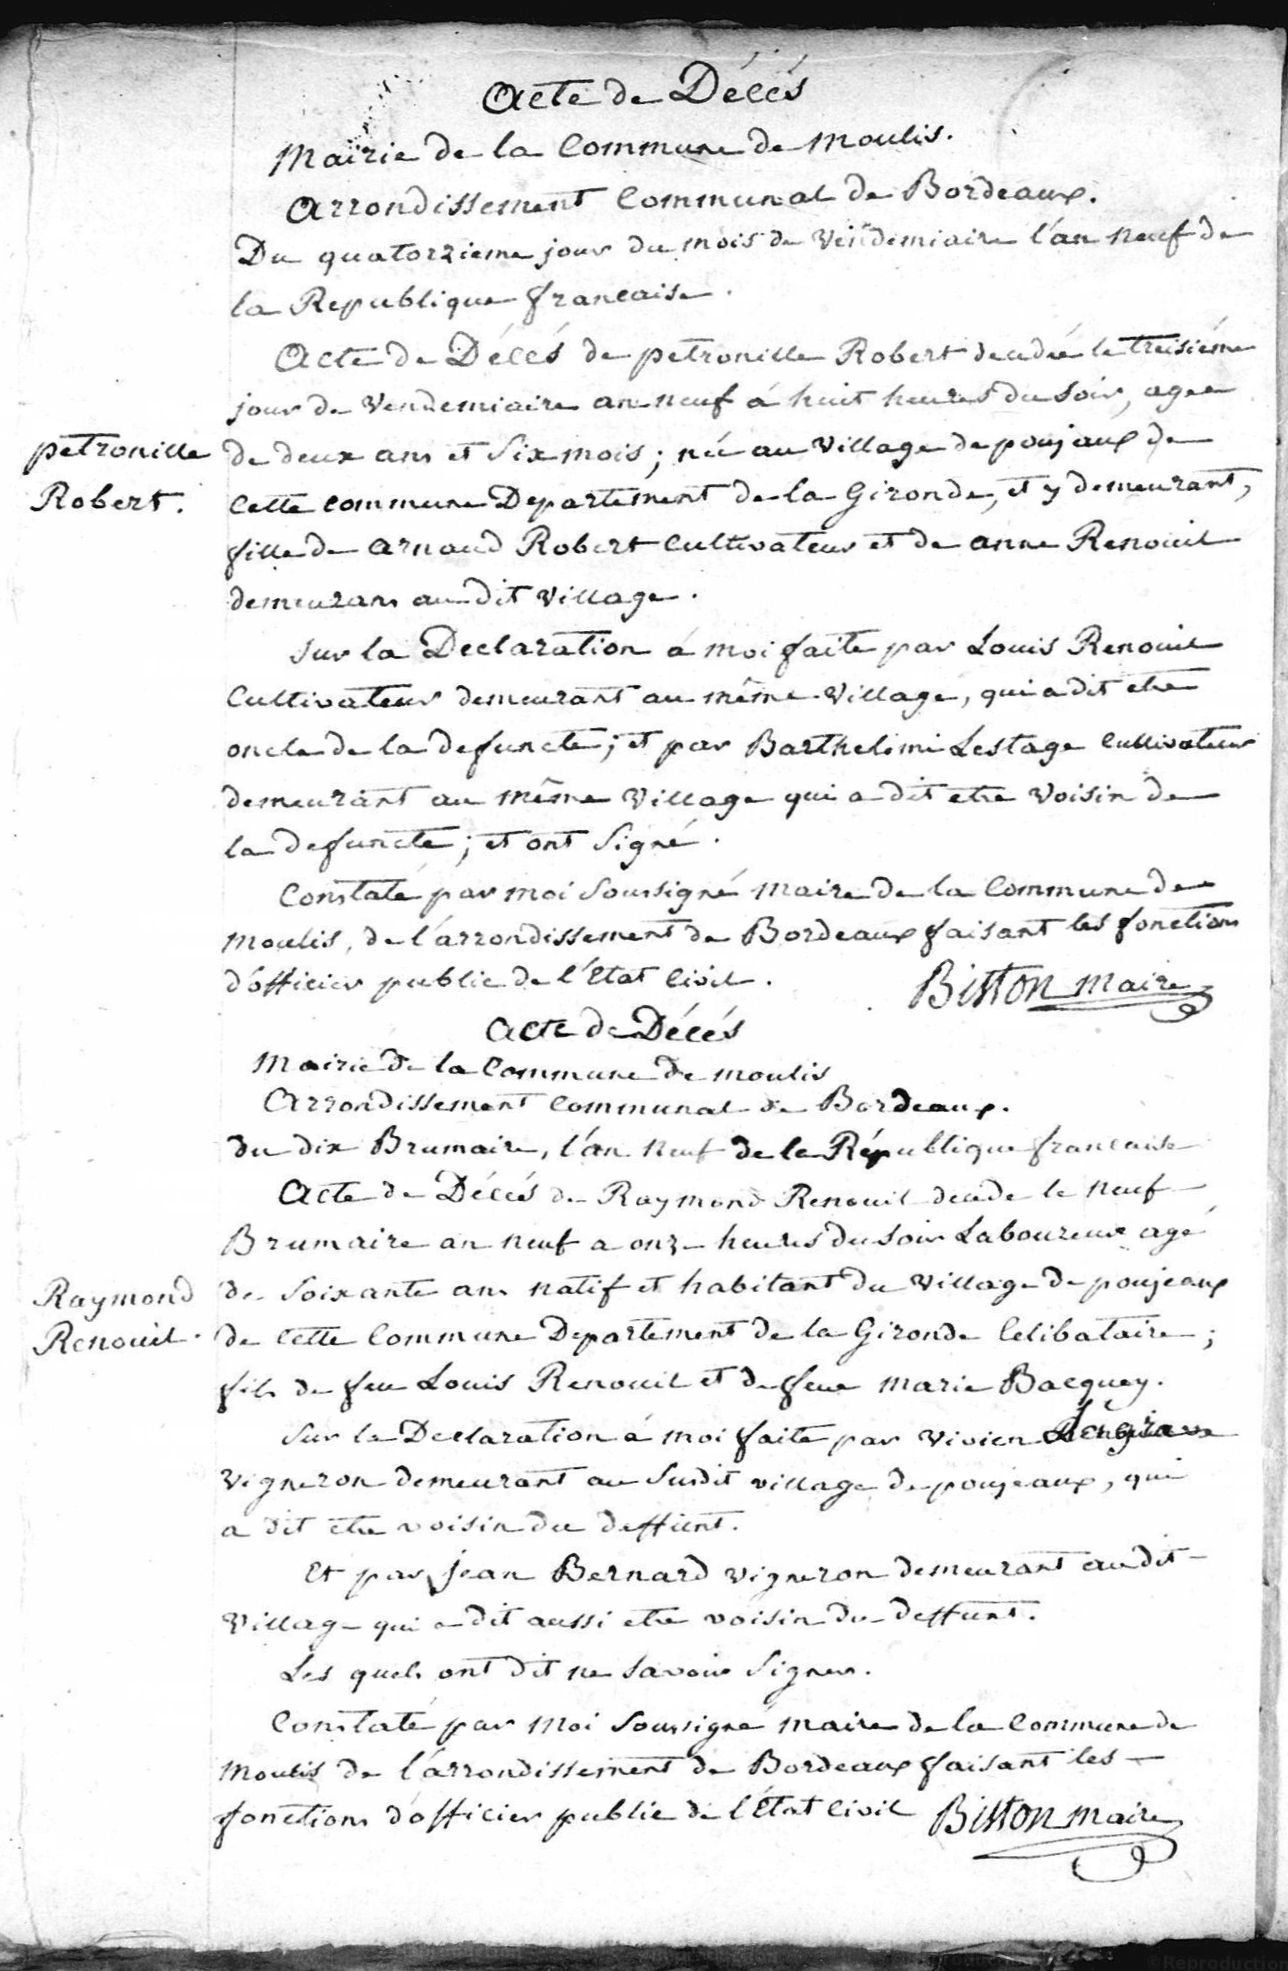 Acte de Décés
Mairie de la Commune de moulis.
Arrondissement Communal de Bordeaux.
Du quatorzieme jour du mois de Vendemiaire l'an neuf de
la Republique francaise.
Acte de Décés de petronille Robert decedée le treisiéme
jour de Vendemiaire an neuf á huit heures du soir, agee
petronille
Robert.
de deux ans et six mois; née au village de poujaux de
cette commune Departement de la Gironde, et y demeurant,
fille de arnaud Robert Cultivateur et de anne Renouil
demeurans au dit village.
Sur la Declaration á moi faite par Louis Renouil
Cultivateur demeurant au même village, qui a dit etre
oncle de la defuncte; et par Barthelemi Lestage Cultivateur
demeurant au même village qui a dit etre voisin de
la defuncte; et ont signé.
Constaté par moi soussigné Maire de la Commune de
Moulis, de l'arrondissement de Bordeaux faisant les fonctions
d'officier public de l'Etat Civil.
Bitton maire
Acte de Décés
Mairie de la Commune de moulis
Arrondissement Communal de Bordeaux.
du dix Brumaire, l'an neuf de la République francaise
Acte de Décés de Raymond Renouil decede le neuf
Brumaire an neuf a onze heures du soir Laboureur agé
Raymond
Renouil.
de soixante ans natif et habitant du village de poujeaux
de cette Commune Departement de la Gironde Celibataire;
fils de feu Louis Renouil et de feue Marie Bacquey.
Sur la Declaration á moi faite par vivien
vigneron demeurant au susdit village de poujeaux, qui
a dit etre voisin du deffunt.
Et par jean Bernard vigneron demeurant au dit
village qui a dit aussi etre voisin du deffunt.
Les quels ont dit ne savoir signer.
Constaté par moi soussigné maire de la Commune de
Moulis de l'arrondissement de Bordeaux faisant les
fonctions d'officier public de l'État civil
Bitton maire